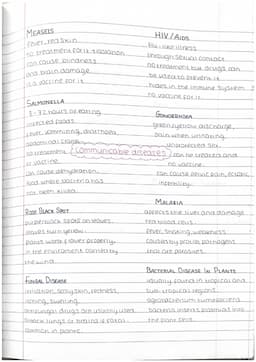 MEASELS
fever, red skin
no treatment for it
can cause blindness
and brain damage
is a vaccine for it
SALMONELLA
8-72 hours of eating
infected foods
fever, vomiting, diarrhoea
abdominal cramps
no treatment
or vaccine
can cause dehydration
food where bacteria has
not been killed
ROSE BLACK SPOT
purple black spots on leaves
leaves turn yellow
plants won't flower properly
in the environment carried by
the wind
FUNGAL DISEASE
irritation, scaly skin, redness,
itching, swelling
antifungal drugs are usually used
common in plants
communicable diseases
HIV/AIDS
flu-like illness
through sexual contact
no treatment but drugs can
be used to prevent it
hides in the immune system
no vaccine for it
GONORRHOEA
green/yellow discharge,
pain when urinating
unprotected sex
can be treated and
no vaccine
can cause pelvic pain, ectopic,
infertility
MALARIA
affects the liver and damage
red blood cells
fever, shaking, weakness
caused by protist pathogens
that are parasites
BACTERIAL DISEASE IN PLANTS
usually found in tropical and
sub-tropical regions
agrobacterium tumefaciens
bacteria inserts plasmid into
the plant cells